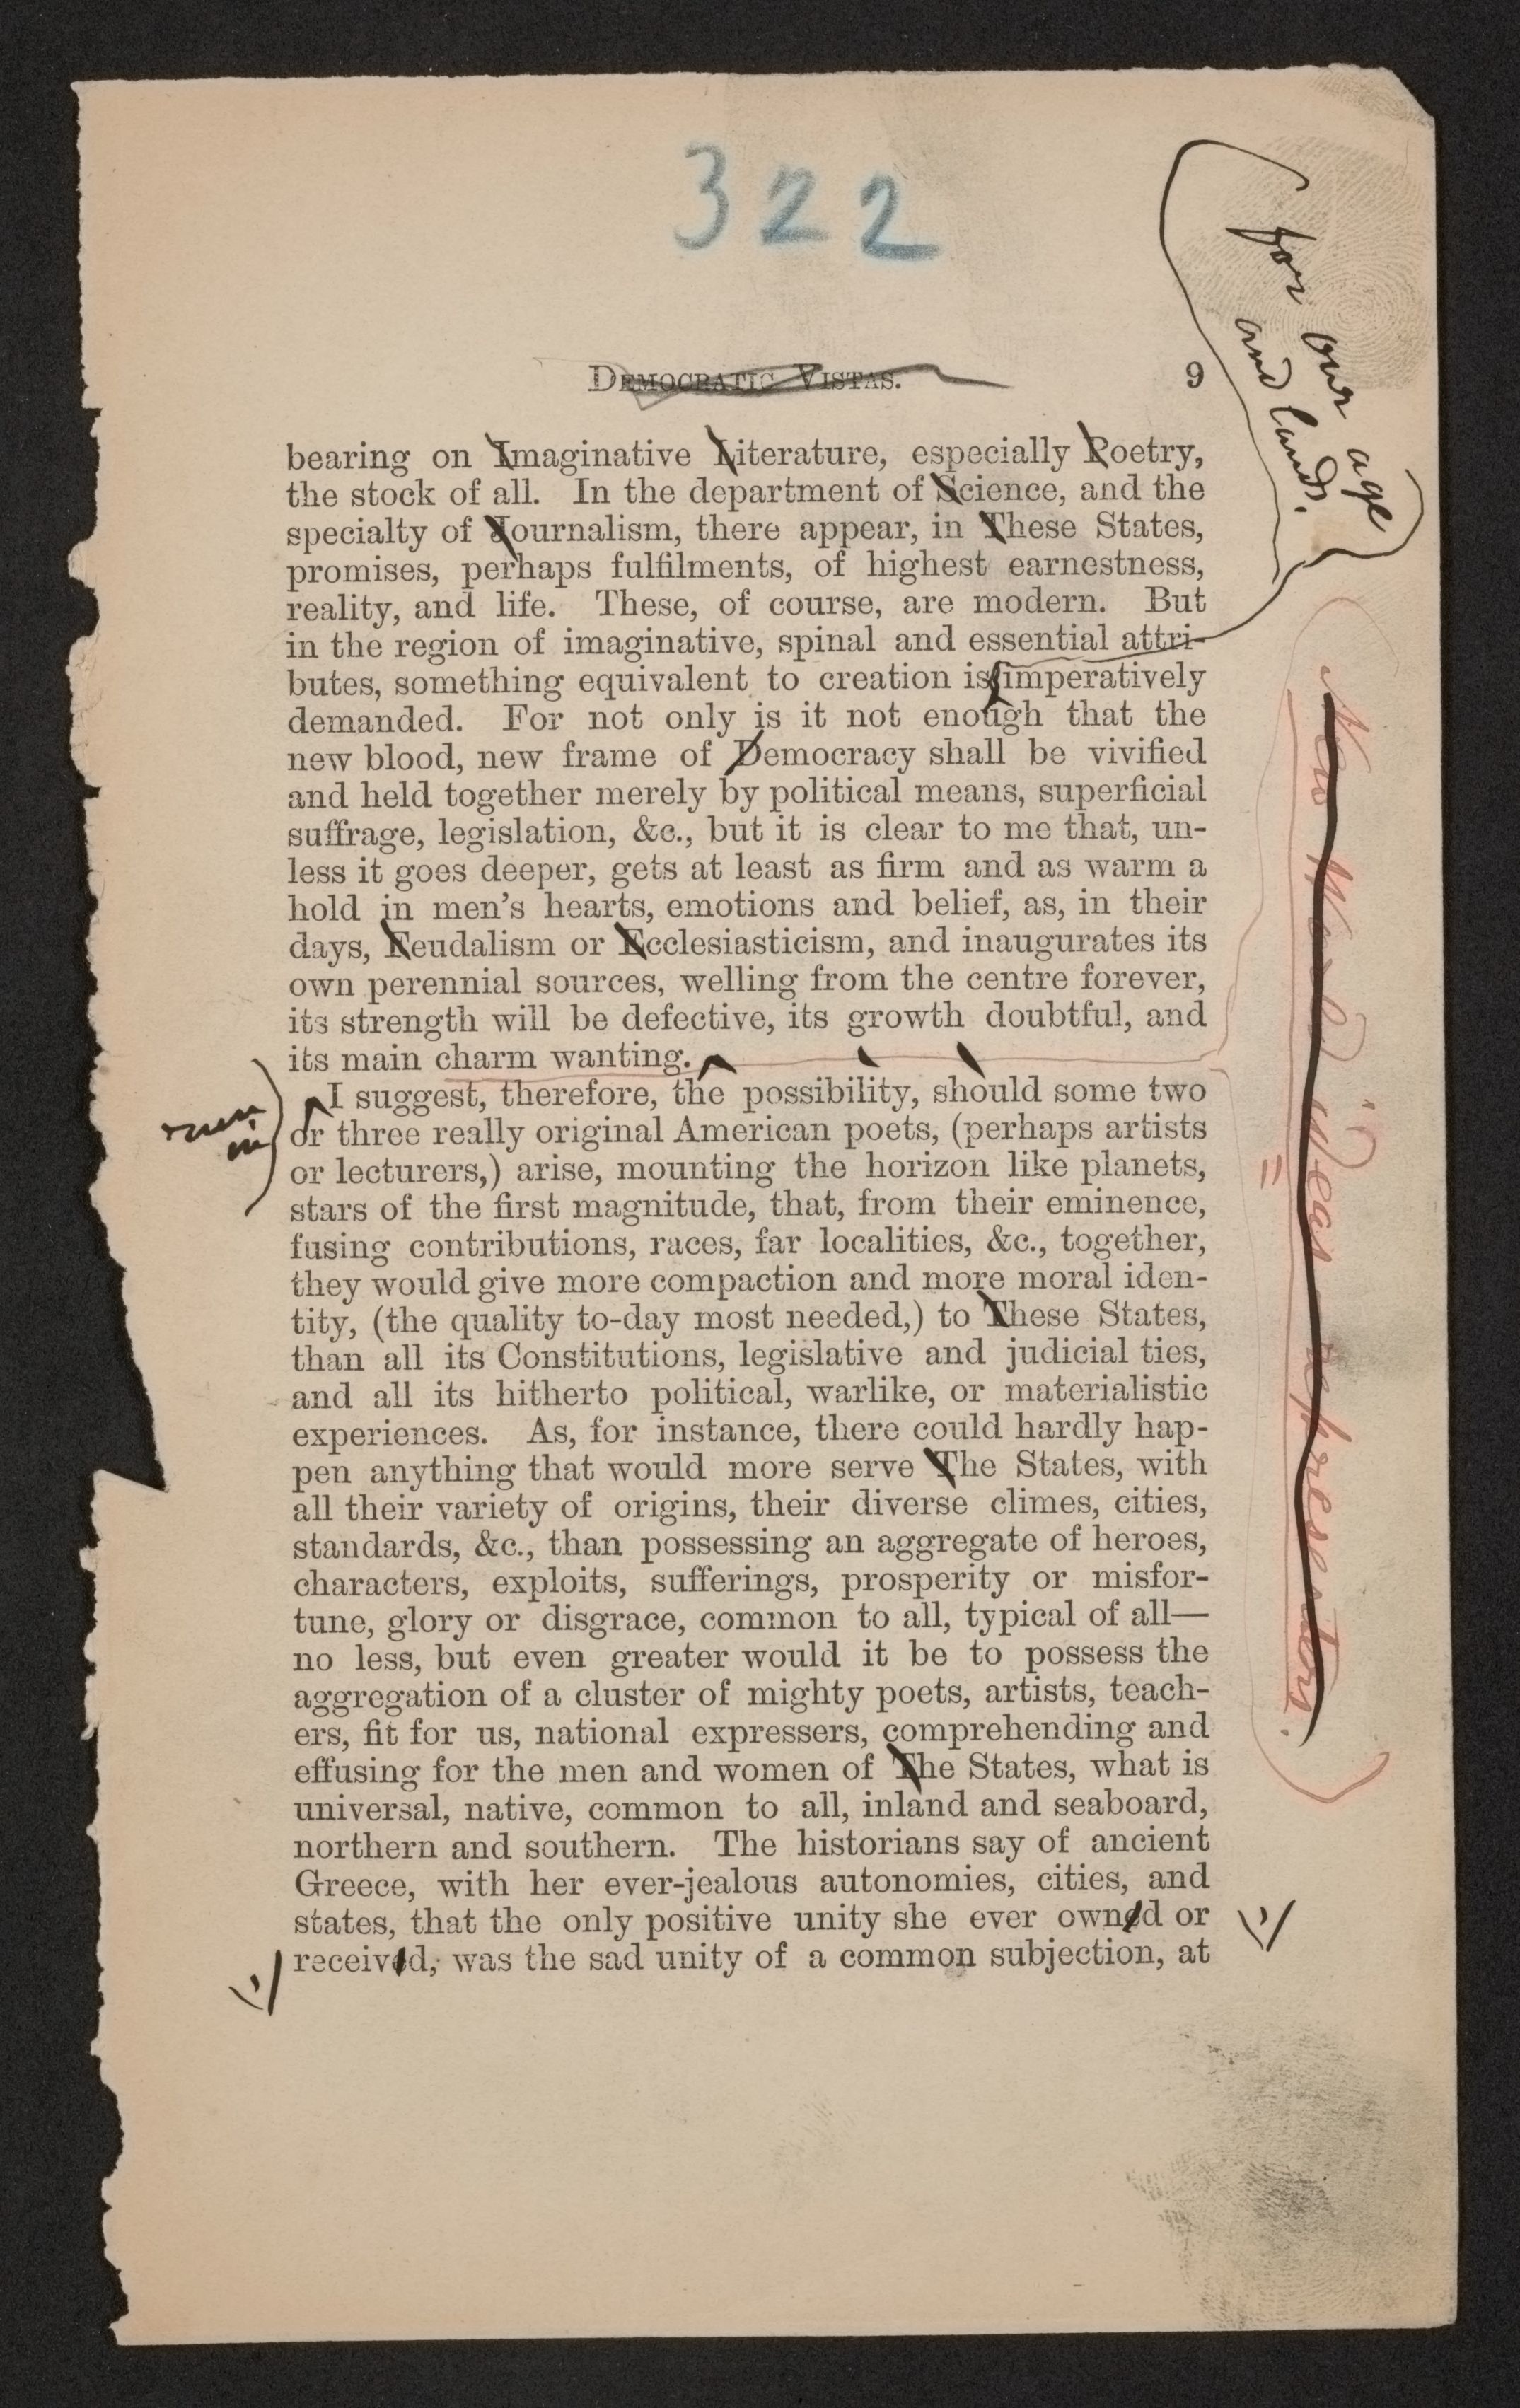 322
for our age
and lands.
DEMOCRATIC VISTAS. 9
bearing on Imaginative Literature, especially Poetry,
the stock of all. In the department of Science, and the
specialty of Journalism, there appear, in These States,
promises, perhaps fulfilments, of highest earnestness,
reality, and life. These, of course, are modern. But
in the region of imaginative, spinal and essential attri-
butes, something equivalent to creation is imperatively
demanded. For not only is it not enough that the
new blood, new frame of Democracy shall be vivified
and held together merely by political means, superficial
suffrage, legislation, &c., but it is clear to me that, un-
less it goes deeper, gets at least as firm and as warm a
hold in men's hearts, emotions and belief, as, in their
days, Feudalism or Ecclesiasticism, and inaugurates its
own perennial sources, welling from the centre forever,
its strength will be defective, its growth doubtful, and
its main charm wanting.
run
in
I suggest, therefore, the possibility, should some two
or three really original American poets, (perhaps artists
or lecturers,) arise, mounting the horizon like planets,
stars of the first magnitude, that, from their eminence,
fusing contributions, races, far localities, &c., together,
they would give more compaction and more moral iden-
tity, (the quality to-day most needed,) to These States,
than all its Constitutions, legislative and judicial ties,
and all its hitherto political, warlike, or materialistic
experiences. As, for instance, there could hardly hap-
pen anything that would more serve The States, with
all their variety of origins, their diverse climes, cities,
standards, &c., than possessing an aggregate of heroes,
characters, exploits, sufferings, prosperity or misfor-
tune, glory or disgrace, common to all, typical of all—
no less, but even greater would it be to possess the
aggregation of a cluster of mighty poets, artists, teach-
ers, fit for us, national expressers, comprehending and
effusing for the men and women of The States, what is
universal, native, common to all, inland and seaboard,
northern and southern. The historians say of ancient
Greece, with her ever-jealous autonomies, cities, and
states, that the only positive unity she ever owned or
received, was the sad unity of a common subjection, at
New World